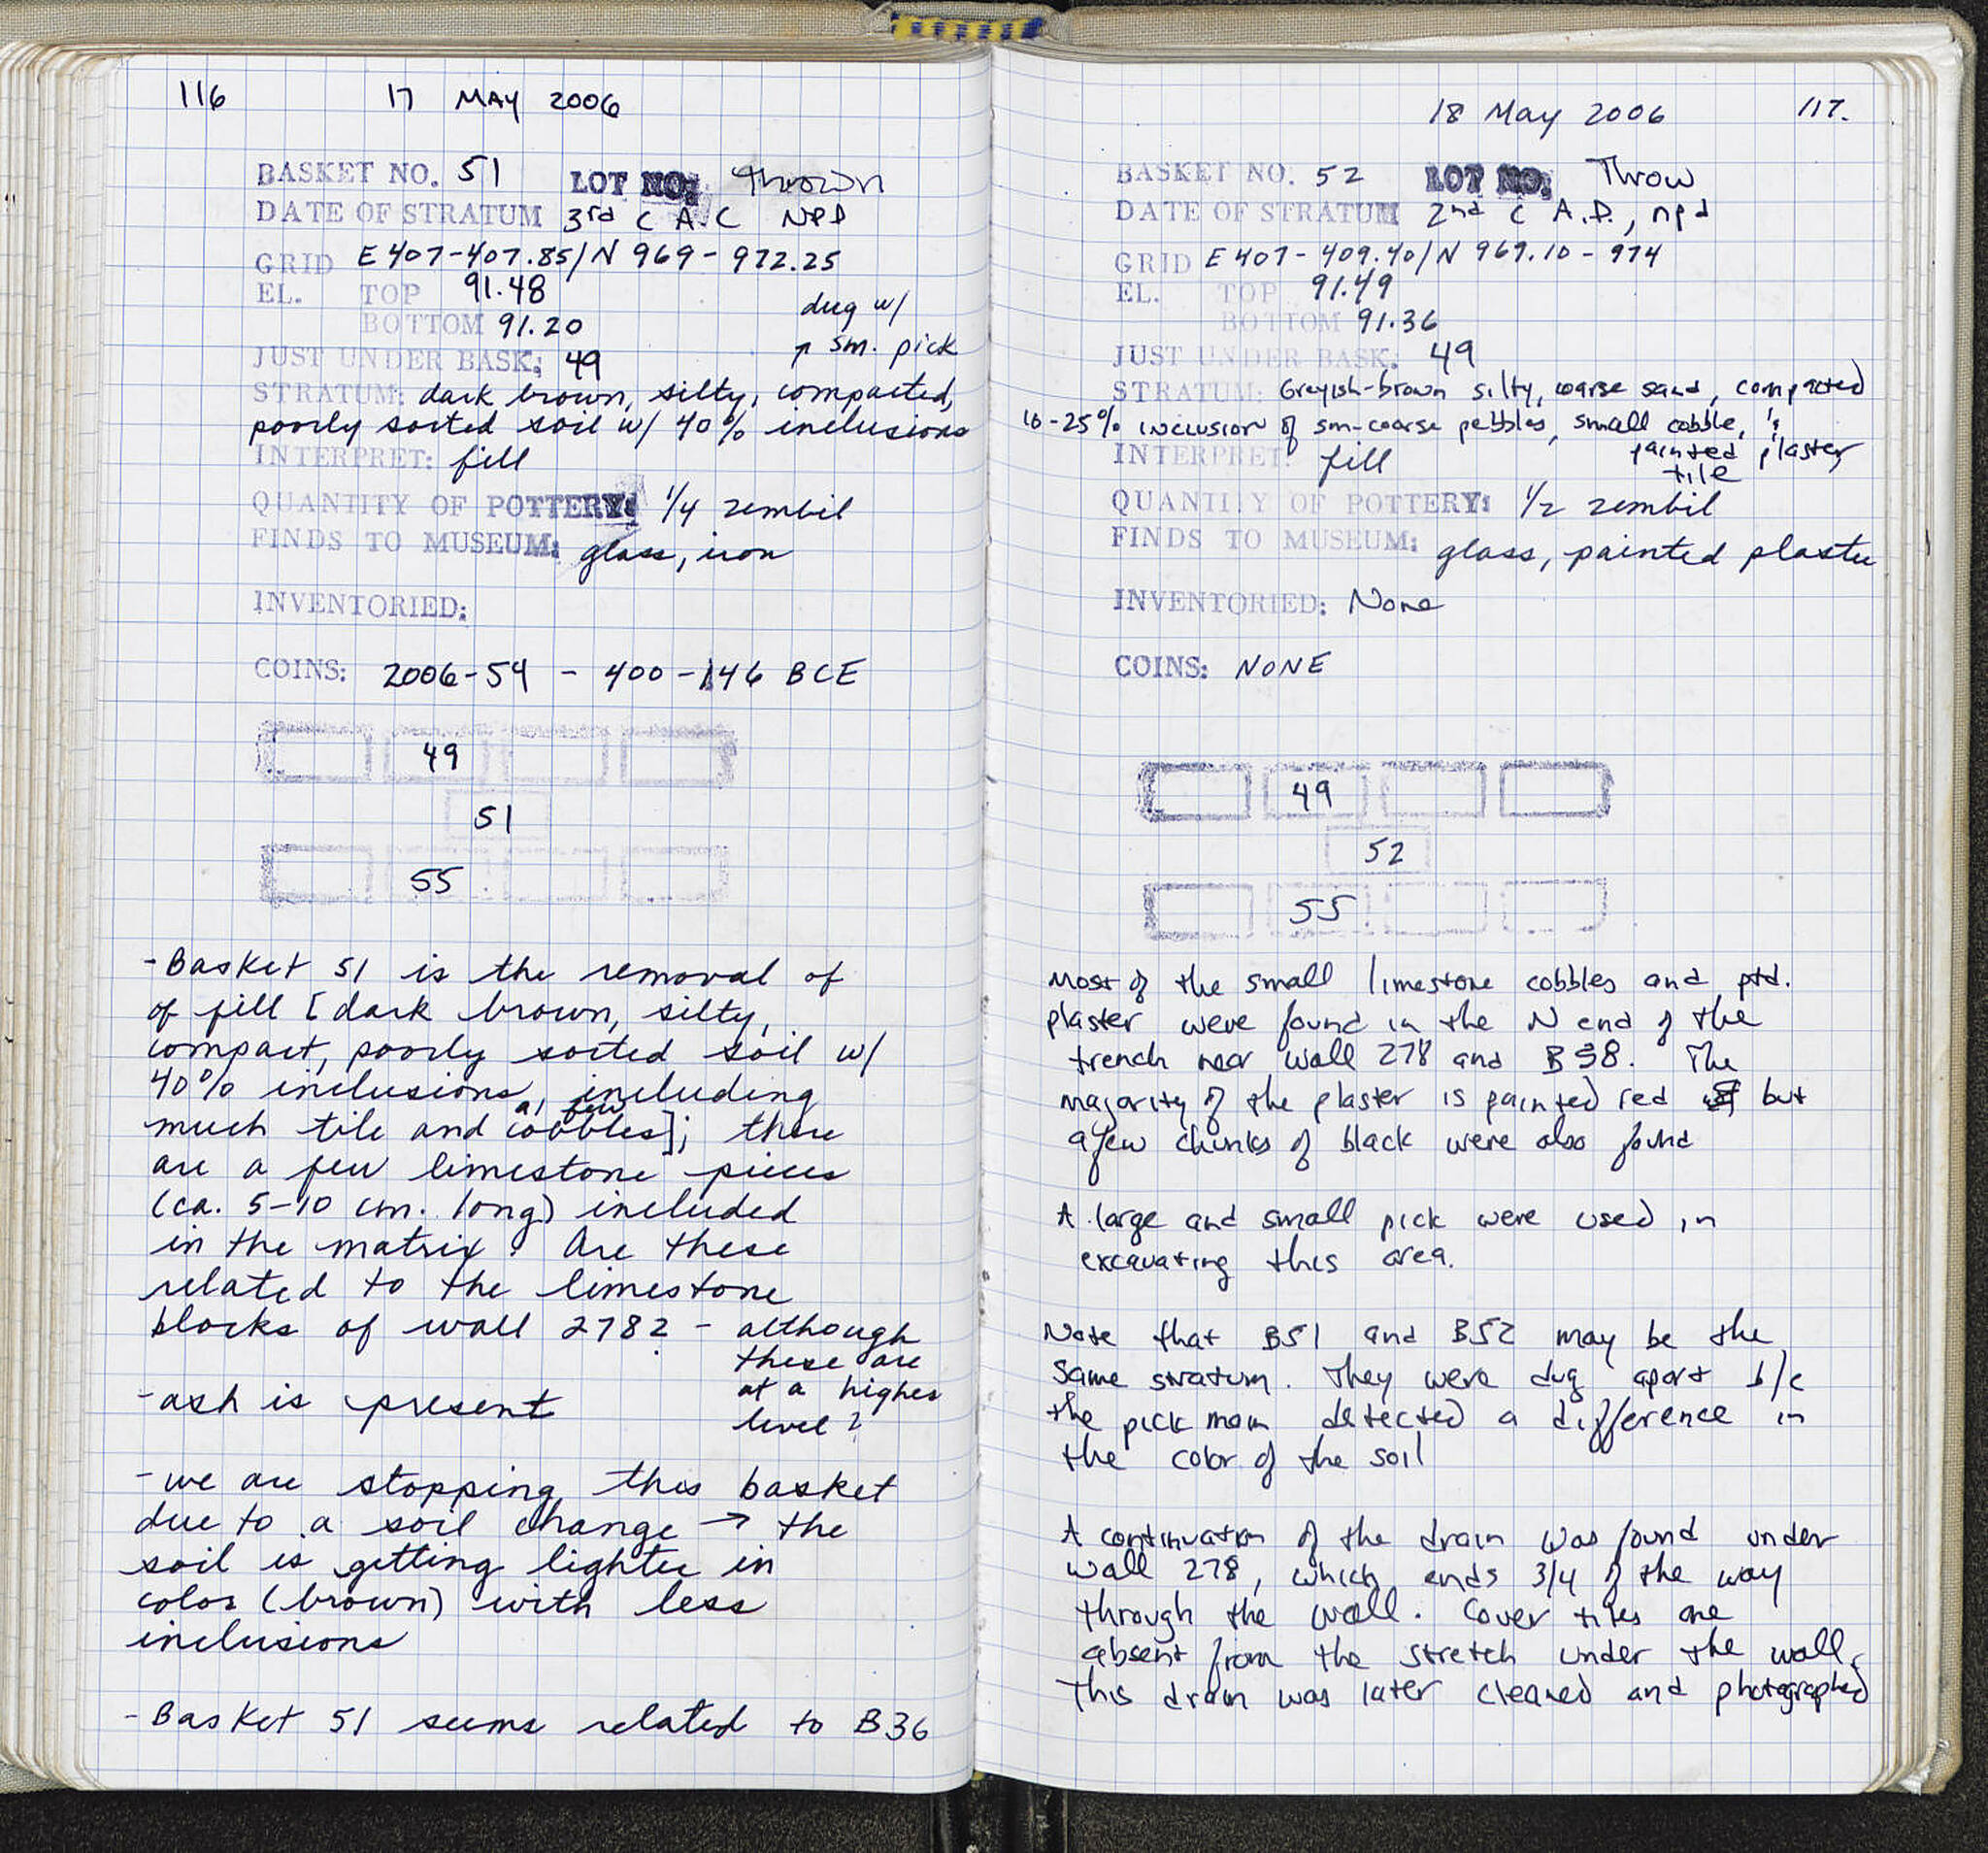 116 17 MAY 2006
BASKET NO. 51 LOT NO: Thrown
DATE OF STRATUM 3rd C A.C NPD
GRID E 407-407.85/N 969-972.25
EL. TOP 91.48
BOTTOM 91.20
dug w/
↑ sm. pick
JUST UNDER BASK: 49
STRATUM: dark brown, silty, compacted,
poorly sorted soil w/ 40% inclusions
INTERPRET: fill
QUANTITY OF POTTERY: 1/4 zembil
FINDS TO MUSEUM: glass, iron
INVENTORIED:
COINS: 2006-54 - 400-146 BCE
49
51
55
- Basket 51 is the removal of
of fill [dark brown, silty,
compact, poorly sorted soil w/
40% inclusions, including
much tile and a few cobbles]; there
are a few limestone pieces
(ca. 5-10 cm. long) included
in the matrix. Are these
related to the limestone
blocks of wall 278? - although
these are
at a higher
level?
- ash is present
- we are stopping this basket
due to a soil change → the
soil is getting lighter in
color (brown) with less
inclusions
- Basket 51 seems related to B36
18 May 2006 117.
BASKET NO. 52 LOT NO: Throw
DATE OF STRATUM 2nd C A.D., npd
GRID E 407-409.40/N 969.10-974
EL. TOP 91.49
BOTTOM 91.36
JUST UNDER BASK: 49
STRATUM: Greyish-brown silty, coarse sand, compacted
10-25% inclusion of sm-coarse pebbles, small cobble, &
painted plaster,
tile
INTERPRET: fill
QUANTITY OF POTTERY: 1/2 zembil
FINDS TO MUSEUM: glass, painted plaster
INVENTORIED: None
COINS: NONE
49
52
55
Most of the small limestone cobbles and ptd.
plaster were found in the N end of the
trench near wall 278 and B38. The
majority of the plaster is painted red but
a few chunks of black were also found
A large and small pick were used in
excavating this area.
Note that B51 and B52 may be the
same stratum. They were dug apart b/c
the pick man detected a difference in
the color of the soil
A continuation of the drain was found under
wall 278, which ends 3/4 of the way
through the wall. Cover tiles are
absent from the stretch under the wall.
This drain was later cleaned and photographed